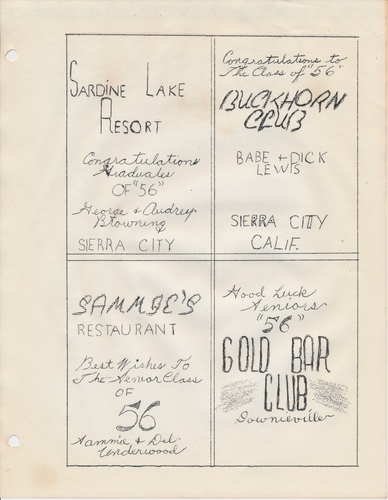 SARDINE LAKE
RESORT
Congratulations
Graduates
OF "56"
George & Audrey
Browning
SIERRA CITY
Congratulations to
The Class of "56"
BUCKHORN
CLUB
BABE + DICK
LEWIS
SIERRA CITY
CALIF.
SAMMIE'S
RESTAURANT
Best Wishes To
The Senior Class
OF
56
Sammie & Del
Underwood
Good Luck
Seniors
"56"
GOLD BAR
CLUB
Downieville